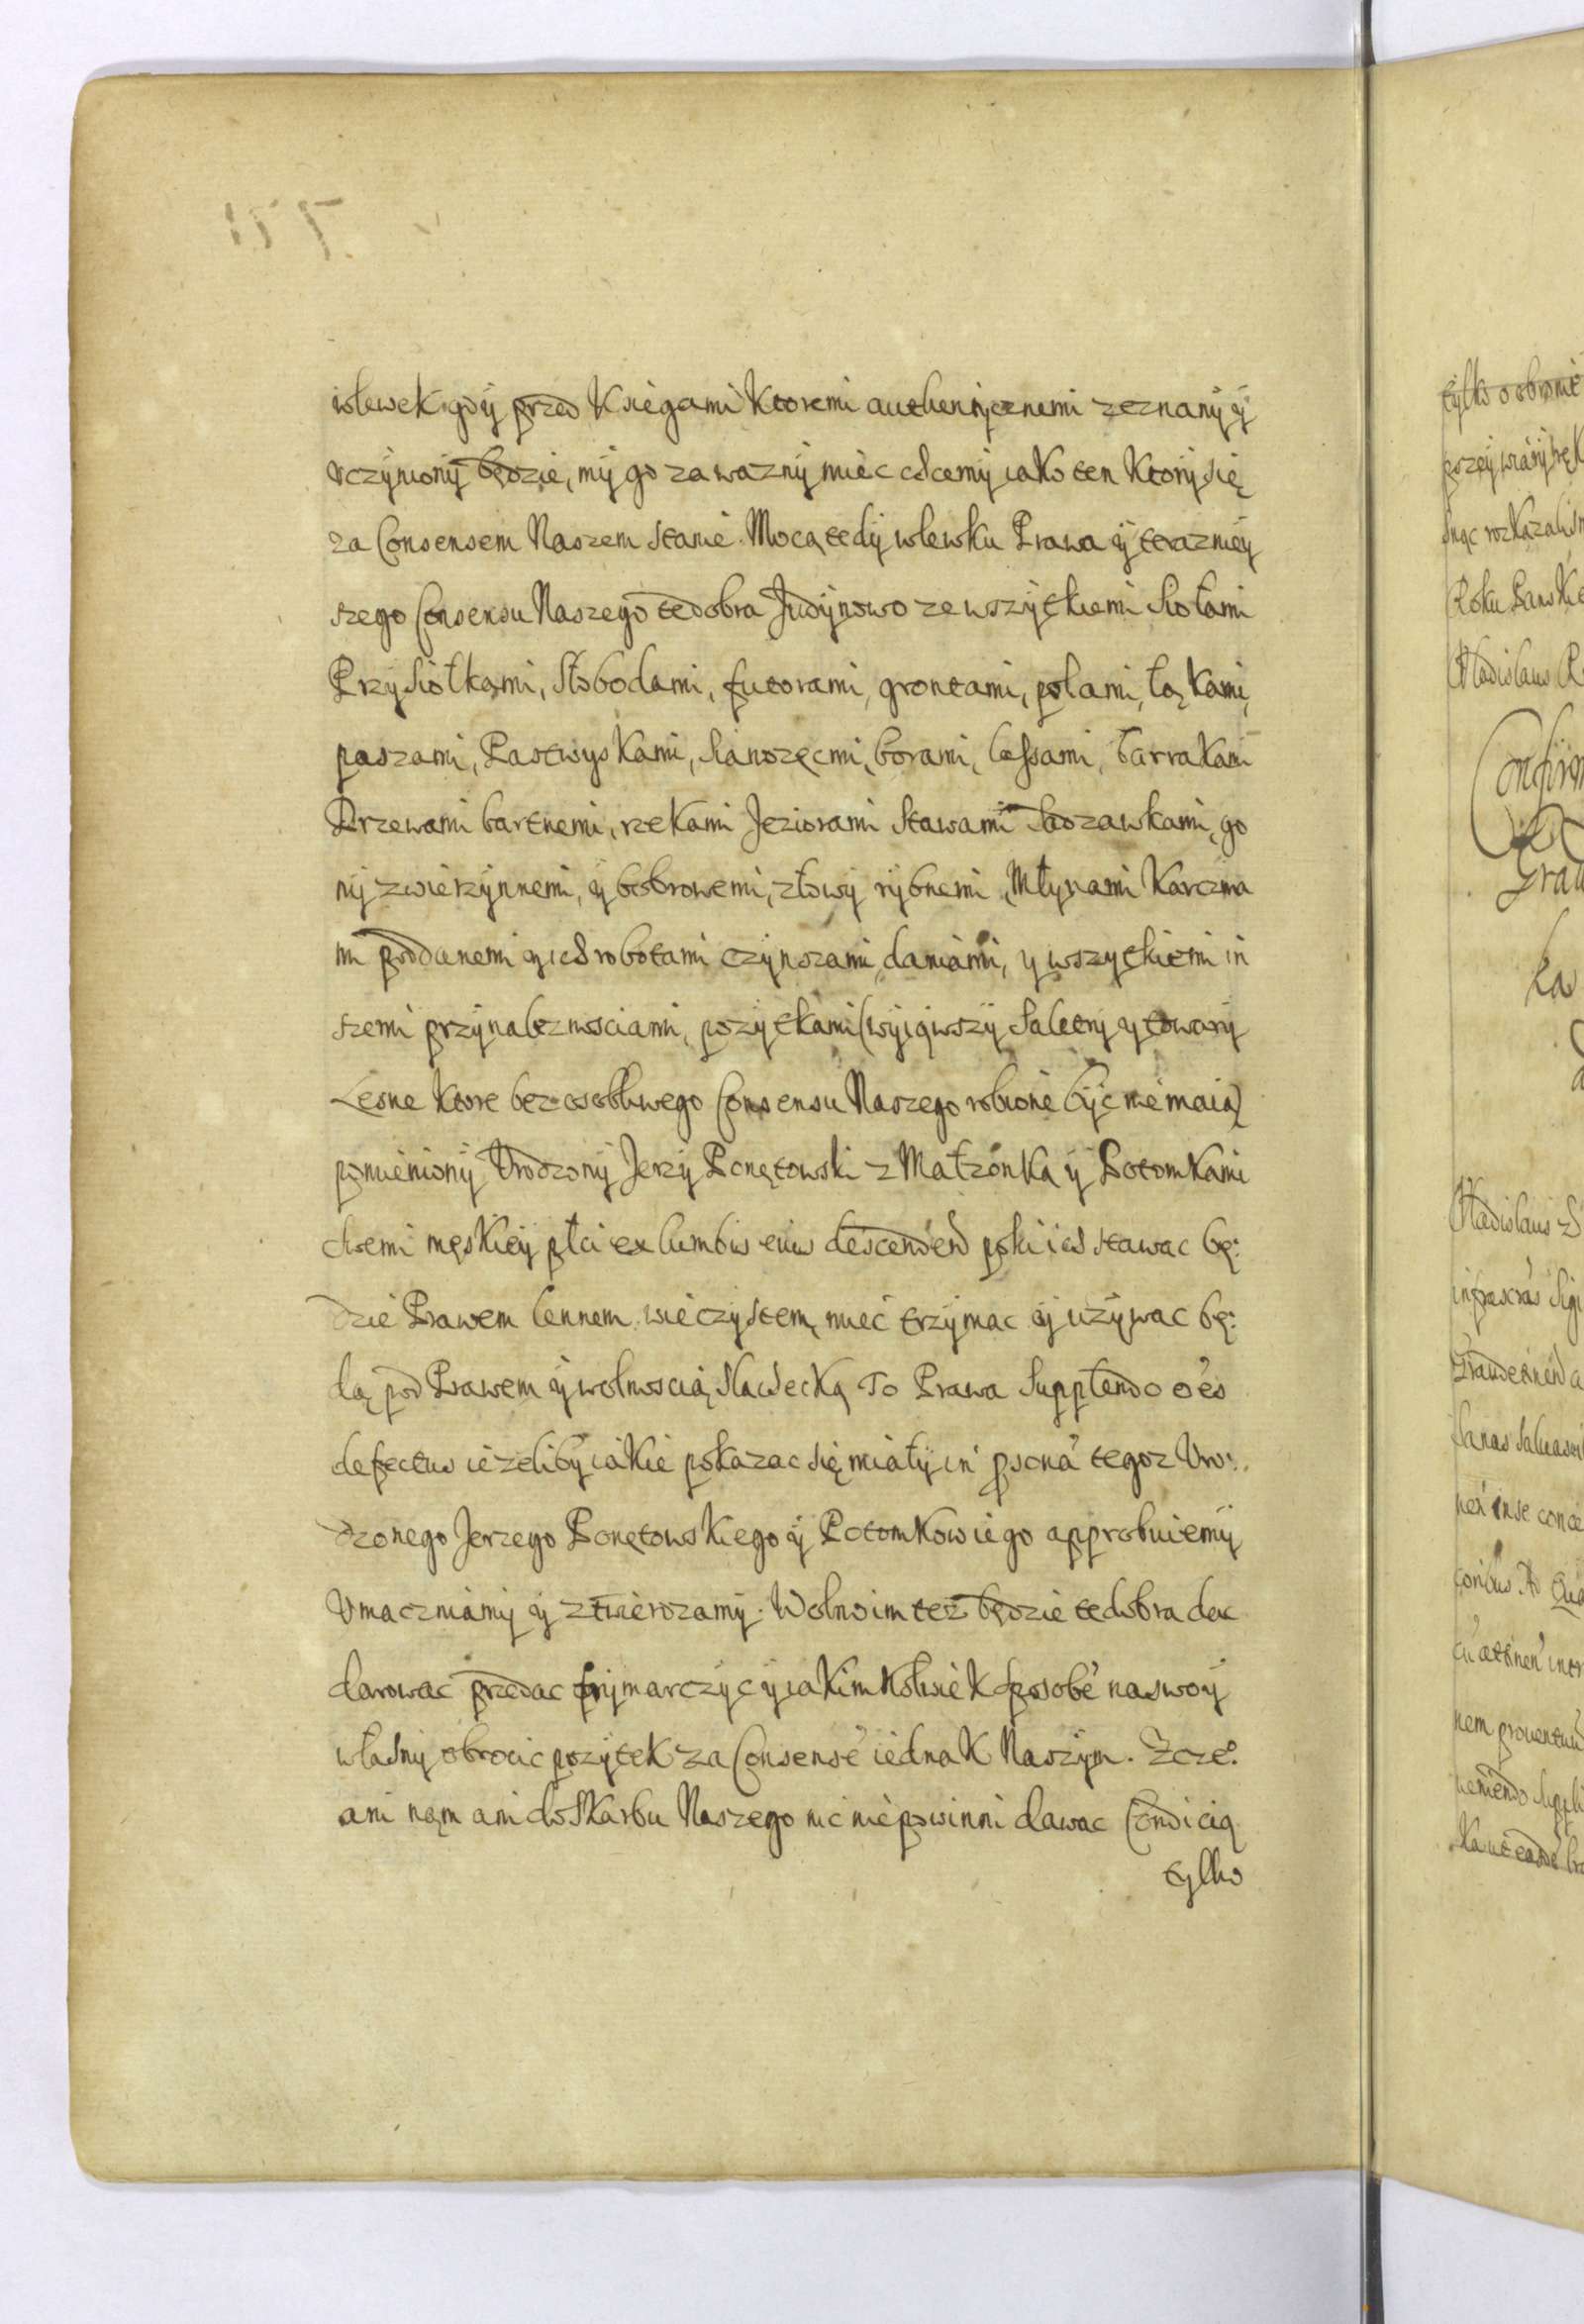 wlewek gdy przed Księgami Ktoremi authentycznemi zeznany y
vczyniony będzie, my go za wazny miec chcemy iako ten Ktory się
za Consensem Naszem stanie. Mocą tedy wlewku Prawa y teraznięy
szego Consensu Naszego te dobra Judynowo ze wszytkiemi Siołami
Przysiołkami, Słobodami, futorami, grontami, polami, łąkami,
paszami, Pastwyskami, sianozęcmi, borami, lassami, barrakami
Drzewami bartnemi, rzekami Jeziorami Stawami Sadzawkami, go
ny zwierzynnemi, y bobrowemi, złowy rybnemi, Młynami Karczma
mi poddanemi y ich robotami czynszami, daniami, y wszytkiemi in
szemi przynaleznosciami, pozytkami (wyiąwszy Saletry y towary
Lesne Ktore bez osobliwego Consensu Naszego robione być nie maią)
pomieniony Vrodzony Jerzy Ponętowski z Małzonką y Potomkami
swemi męskiey płci ex lumbis eius descendeń poki ich stawac bę:
dzie Prawem lennem wieczystem, miec trzymac y uzywac bę:
dą pod Prawem y wolnoscią slachecką To Prawa Supplendo oẽs
defectus iezeliby iakie pokazac się miały in psona tegoz Vro:
dzonego Jerzego Ponętowskiego y Potomkow iego approbuiemy
Vmacniamy y ztwierdzamy. Wolno im tez będzie te dobra dac
darowac przedac frymarczyc y iakim Kolwiek sposobe na swoy
własny obrocic pozytek za Consense iednak Naszym. Z czeº
ani nąm ani do Skarbu Naszego nic niepowinni dawac Condicią
tylko